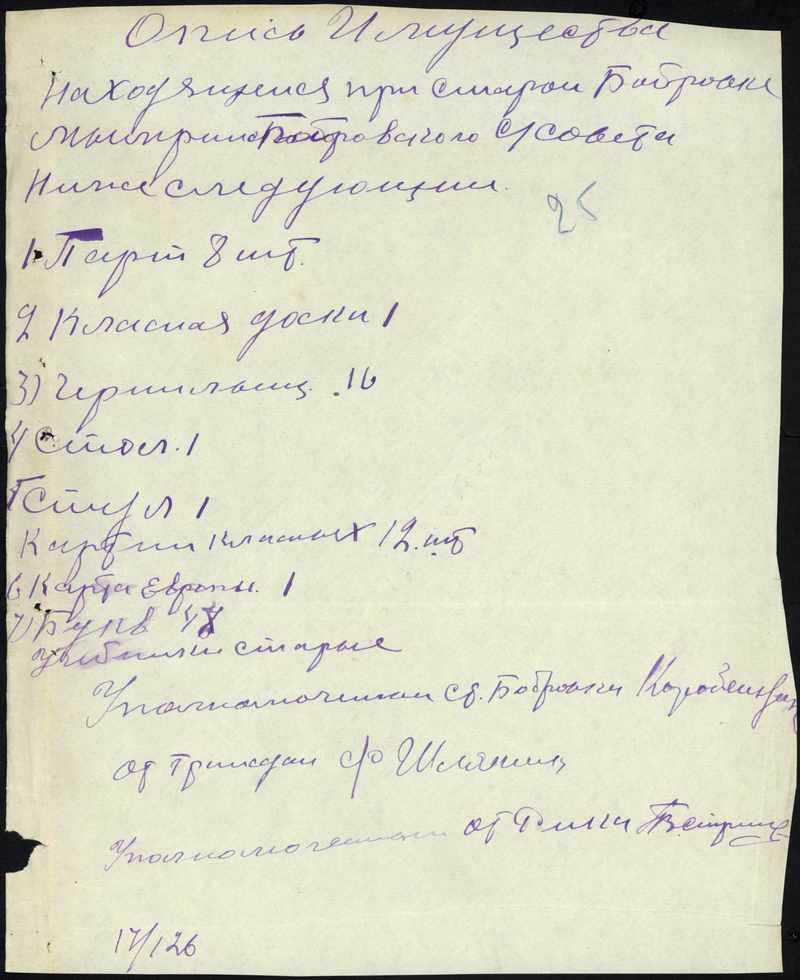 Опись Имущества
Находящиеся при старой Бобровке
Бобровского с/совета
Ниже следующии.
25
1. Парт 8 шт.
2 Класная доски 1
3) Чернильниц. 16
4) Стол. 1
5 Стул 1
Картин класных 12. шт
6 Карта Европы. 1
7) Букв 48
Учебники старые
Уполномочении сб. Бобровки
от Граждан Ф Шляпиц
Уполномочении от Рика
17/126